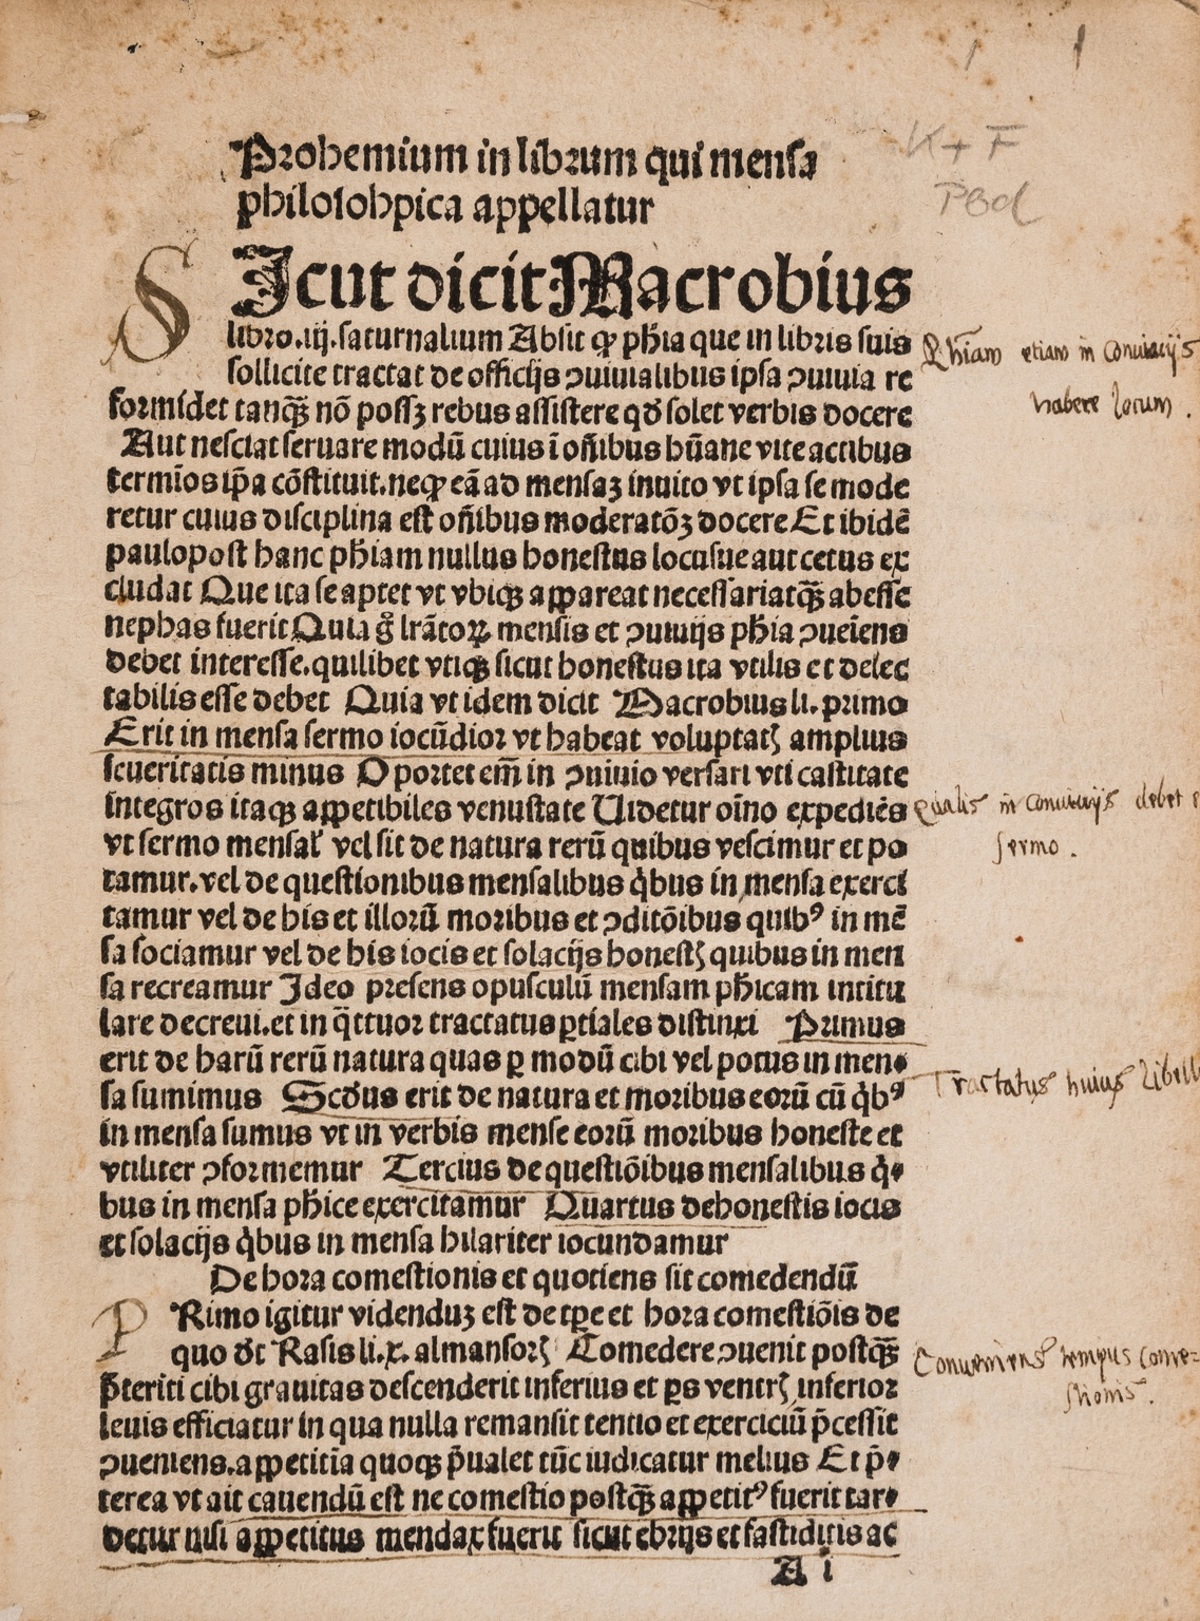 K + F
Pbd
Prohemium in librum qui mensa
philosohpica appellatur
S Icut dicit Macrobius
libro.iij.saturnalium Absit ꝙ ph̄ia que in libris suis
Ph̄iam etiam in conuiuijs
sollicite tractat de officijs ↄuiuialibus ipsa ↄuiuia re
habere locum .
formidet tanqꝫ̄ nō possꝫ rebus assistere qđ solet verbis docere
Aut nesciat seruare modū cuius ī oīnibus hūane vite actibus
termīos ip̄a cōstituit.neqꝫ eā ad mensaꝫ inuito vt ipsa se mode
retur cuius disciplina est oīnibus moderatōꝫ docere Et ibidē
paulopost hanc ph̄iam nullus honestus locusue aut cetus ex
cludat Que ita se aptet vt vbiqꝫ appareat necessariatqꝫ̄ abesse
nephas fuerit Quia g̊ lrātoꝝ mensis et ↄuiuijs ph̄ia ↄueīens
debet interesse.quilibet vtiqꝫ sicut honestus ita vtilis et delec
tabilis esse debet Quia vt idem dicit Macrobius li. primo
Erit in mensa sermo iocūdior vt habeat voluptatꝭ amplius
seueritatis minus Oportet em̄ in ↄuiuio versari vti castitate
integros itaqꝫ appetibiles venustate Uidetur oīno expediēs
qualis in conuiuijs debet
vt sermo mensal' vel sit de natura rerū quibus vescimur et po
sermo .
tamur.vel de questionibus mensalibus q̇bus in mensa exerci
tamur vel de his et illorū moribus et ↄditōibus quibꝰ in mē
sa sociamur vel de his iocis et solacijs honestꝭ quibus in men
sa recreamur Ideo presens opusculū mensam ph̄icam intitu
lare decreui.et in q̄ttuor tractatus ꝑtiales distinxi Primus
erit de harū rerū natura quas ꝑ modū cibi vel potus in men⸗
Tractatus huius libelli
sa sumimus Scđus erit de natura et moribus eorū cū q̇bꝰ
in mensa sumus vt in verbis mense eorū moribus honeste et
vtiliter ↄformemur Tercius de questiōibus mensalibus q̇⸗
bus in mensa ph̄ice exercitamur Quartus dehonestis iocis
et solacijs q̇bus in mensa hilariter iocundamur
De hora comestionis et quotiens sit comedendū
P Rimo igitur videnduꝫ est de tꝑe et hora comestiōis de
quo đt Rasis li.x. almansorꝭ Comedere ↄuenit postqꝫ̄
Conueniens tempus come-
p̄teriti cibi grauitas descenderit inferius et ꝑs ventrꝭ inferior
stionis .
leuis efficiatur in qua nulla remansit tentio et exerciciū p̄cessit
ↄueniens.appetitīa quoqꝫ p̄ualet tūc iudicatur melius Et p̄⸗
terea vt ait cauendū est ne comestio postqꝫ̄ appetitꝰ fuerit tar⸗
detur nisi appetitus mendax fuerit sicut ebrijs et fastiditis ac
A i